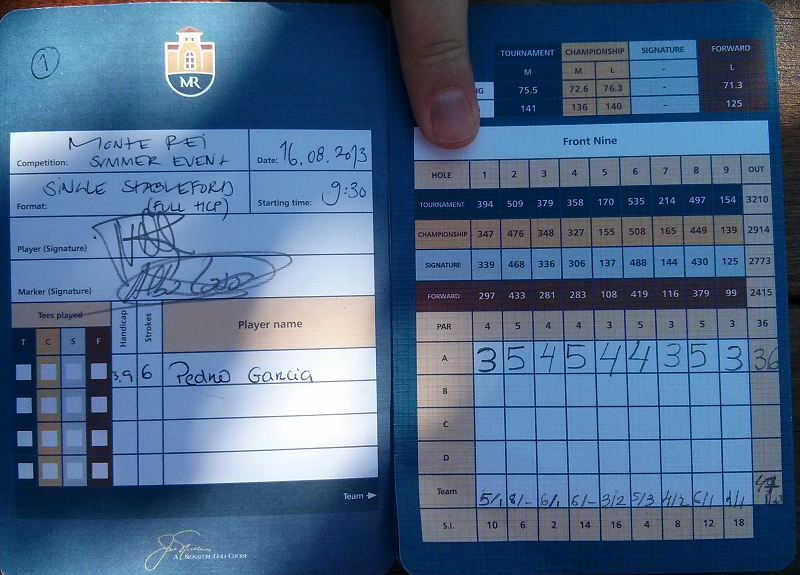 1
MR
MONTE REI
Competition: SUMMER EVENT
Date: 16.08.2013
SINGLE STABLEFORD
Format: (FULL HCP)
Starting time: 9:30
Player (Signature)
Marker (Signature)
Tees played
T C S F
Handicap
Strokes
Player name
3.9 6 Pedro Garcia
Team
A SIGNATURE GOLF COURSE
TOURNAMENT CHAMPIONSHIP SIGNATURE FORWARD
M M L - L
75.5 72.6 76.3 - 71.3
141 136 140 - 125
Front Nine
HOLE 1 2 3 4 5 6 7 8 9 OUT
TOURNAMENT 394 509 379 358 170 535 214 497 154 3210
CHAMPIONSHIP 347 476 348 327 155 508 165 449 139 2914
SIGNATURE 339 468 336 306 137 488 144 430 125 2773
FORWARD 297 433 281 283 108 419 116 379 99 2415
PAR 4 5 4 4 3 5 3 5 3 36
A 3 5 4 5 4 4 3 5 3 36
B
C
D
Team 5/1 8/- 6/1 6/- 3/2 5/3 4/2 6/1
S.I. 10 6 2 14 16 4 8 12 18